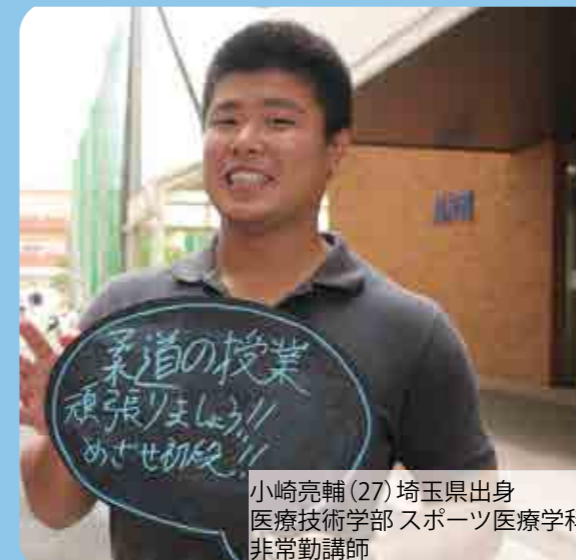 柔道の授業
頑張りましょう!!
めざせ初段!!
小崎亮輔(27)埼玉県出身
医療技術学部 スポーツ医療学科
非常勤講師